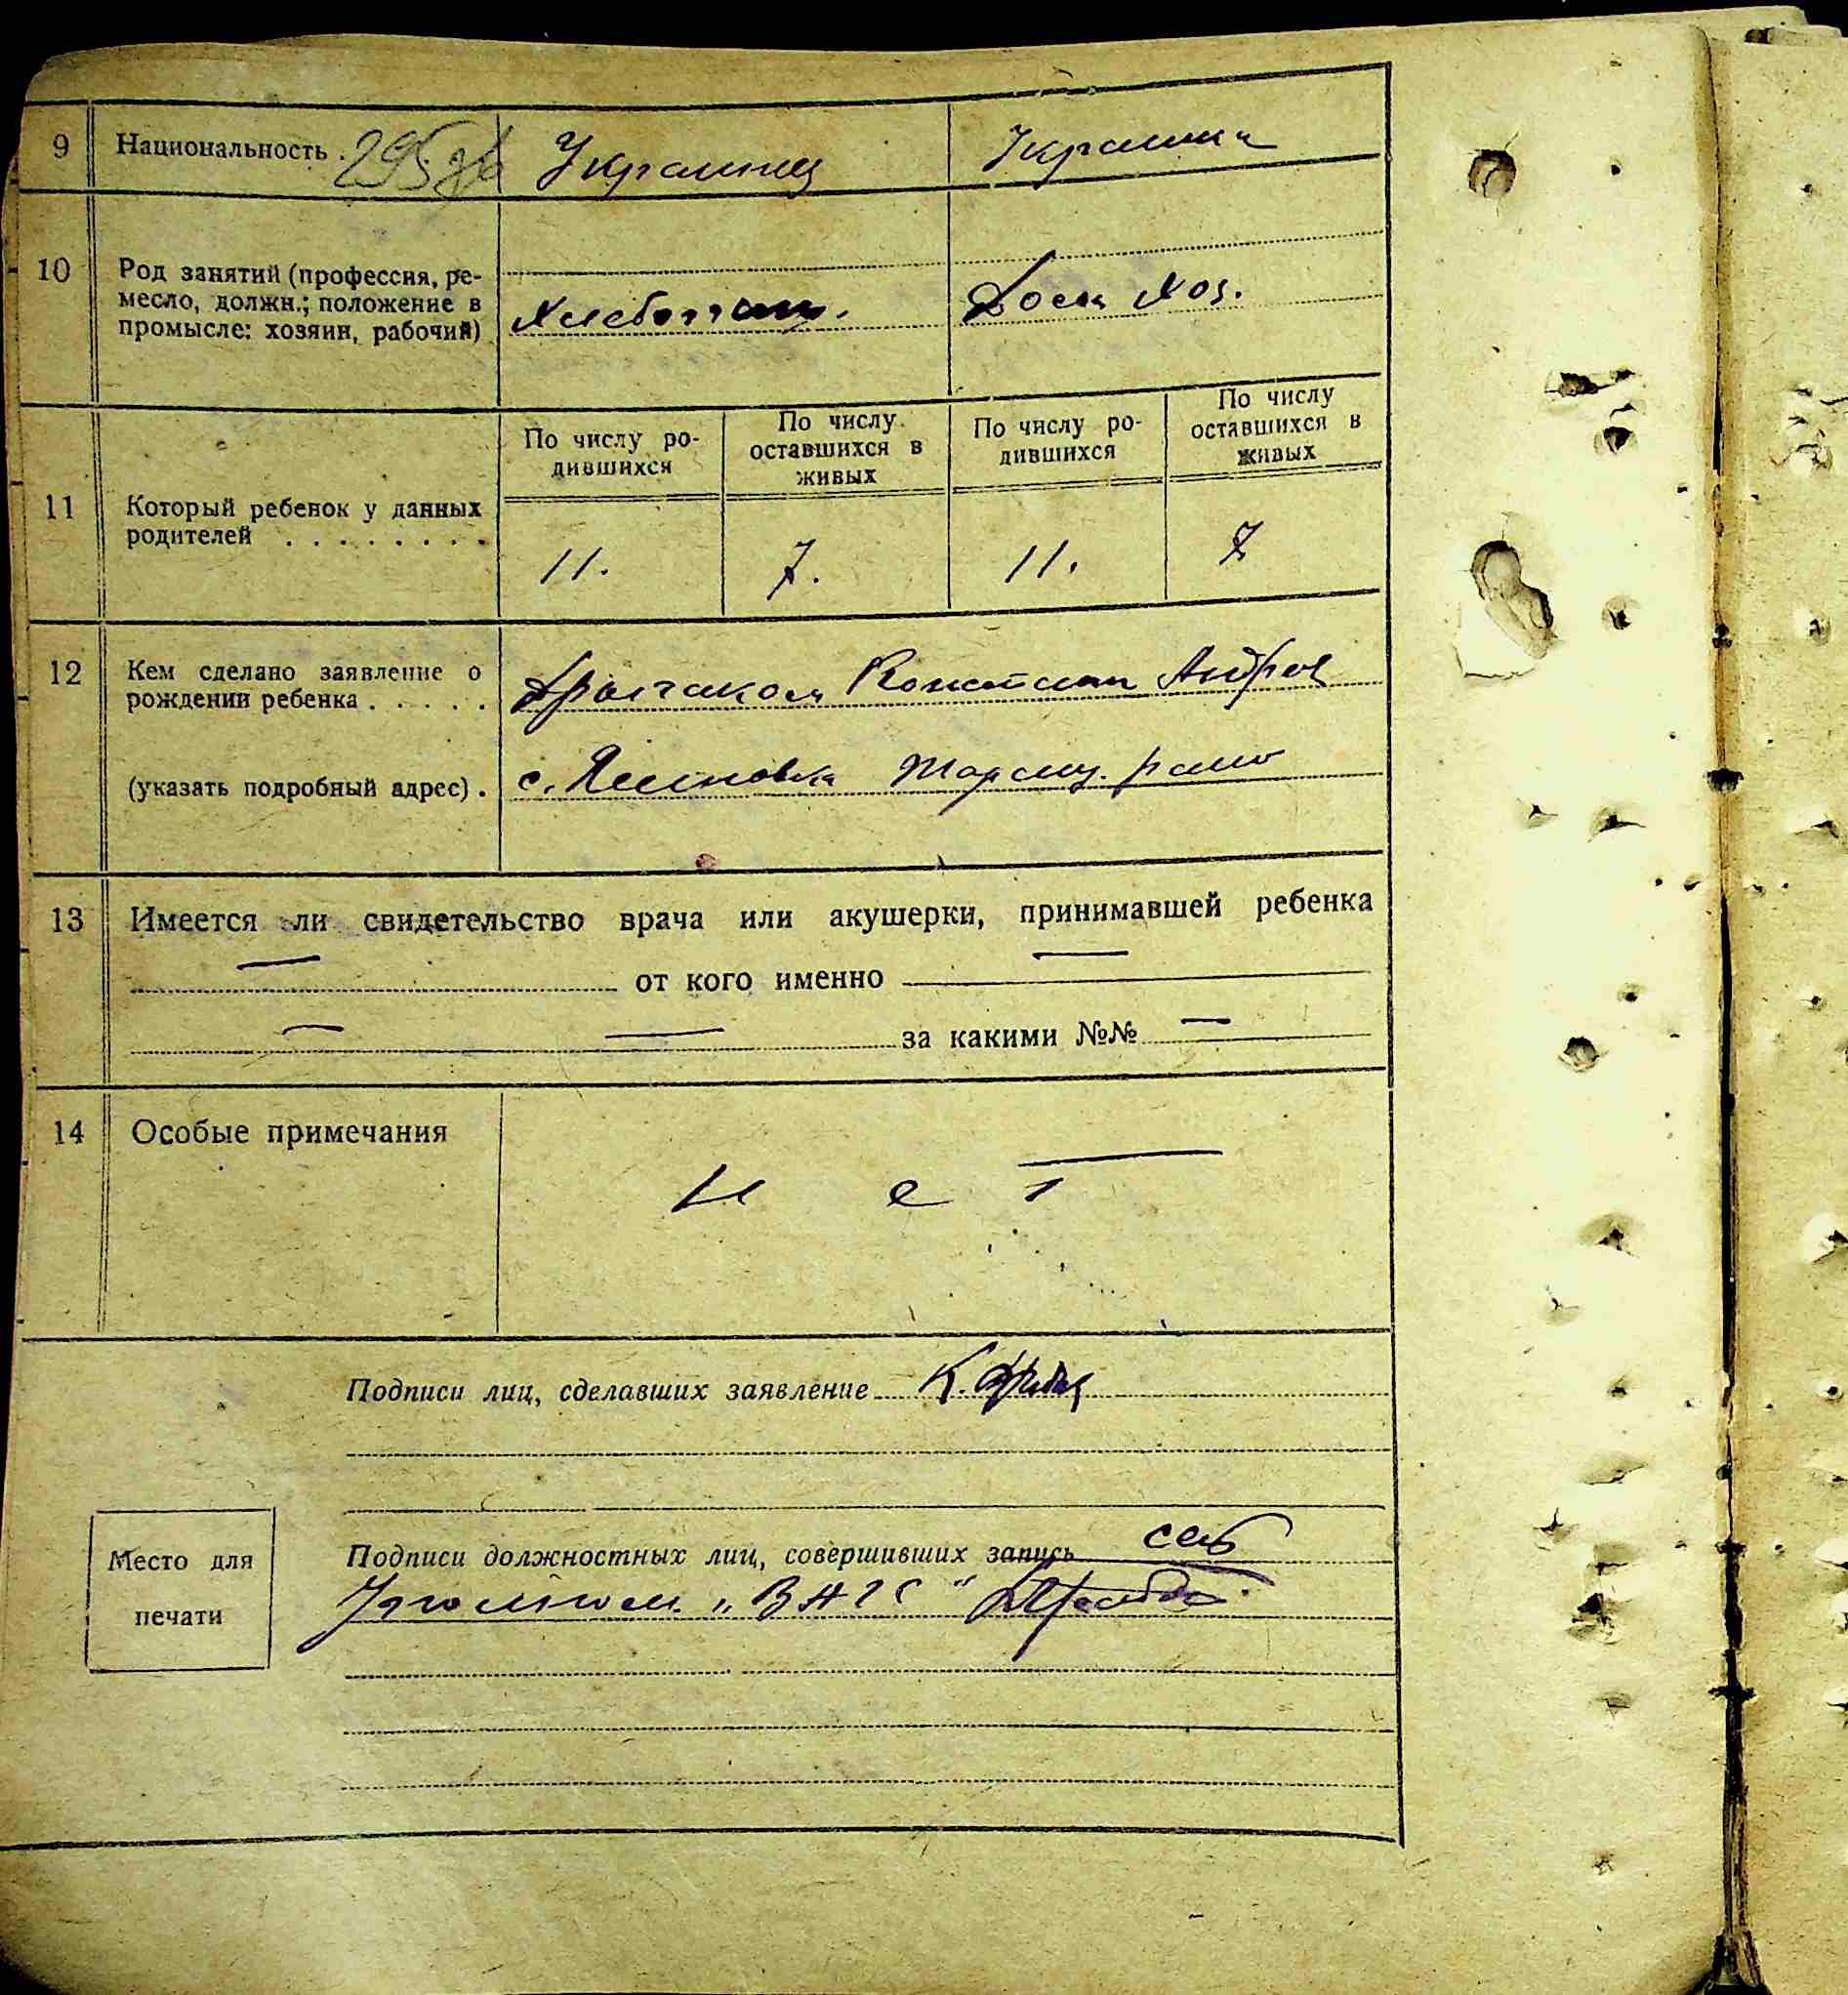 9 Национальность . Украинец Украинка
10 Род занятий (профессия, ре-
месло, должн.; положение в
промысле: хозяин, рабочий)
Хлебопашец. Дом хоз.
По числу ро-
дившихся
По числу
оставшихся в
живых
По числу ро-
дившихся
По числу
оставшихся в
живых
11 Который ребенок у данных
родителей . . . . . . . .
11. 7. 11. 7
12 Кем сделано заявление о
рождении ребенка . . . . .
Константин Андрее
(указать подробный адрес) .
с.
13 Имеется ли свидетельство врача или акушерки, принимавшей ребенка
— от кого именно —
— — за какими №№ —
14 Особые примечания
Нет
Подписи лиц, сделавших заявление К.
Подписи должностных лиц, совершивших запись
Место для
печати